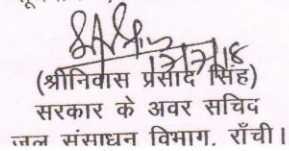 17/7/18
(श्रीनिवास प्रसाद सिंह)
सरकार के अवर सचिव
जल संसाधन विभाग, राँची।